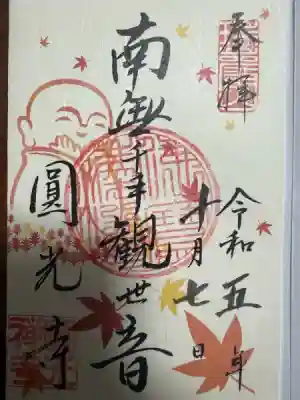 奉拝
令和五年
十月七日
南無千手観世音
圓光寺